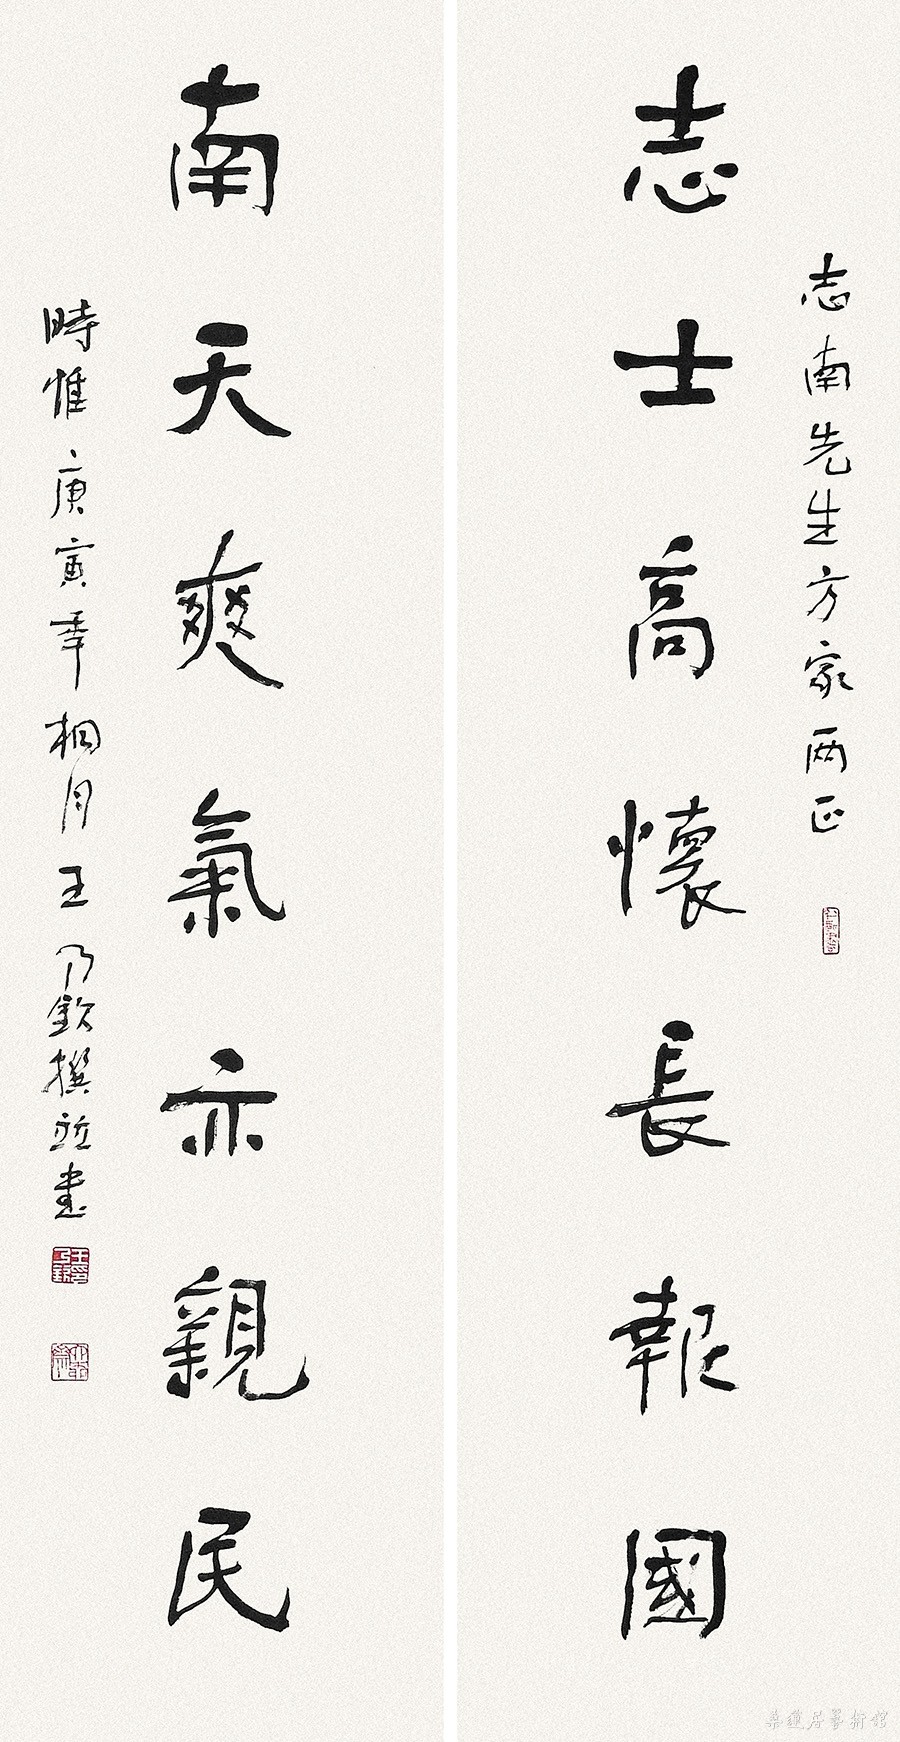 志南先生方家两正
志士高懷長報國
南天爽氣亦親民
時惟庚寅年桐月王乃欽撰並書